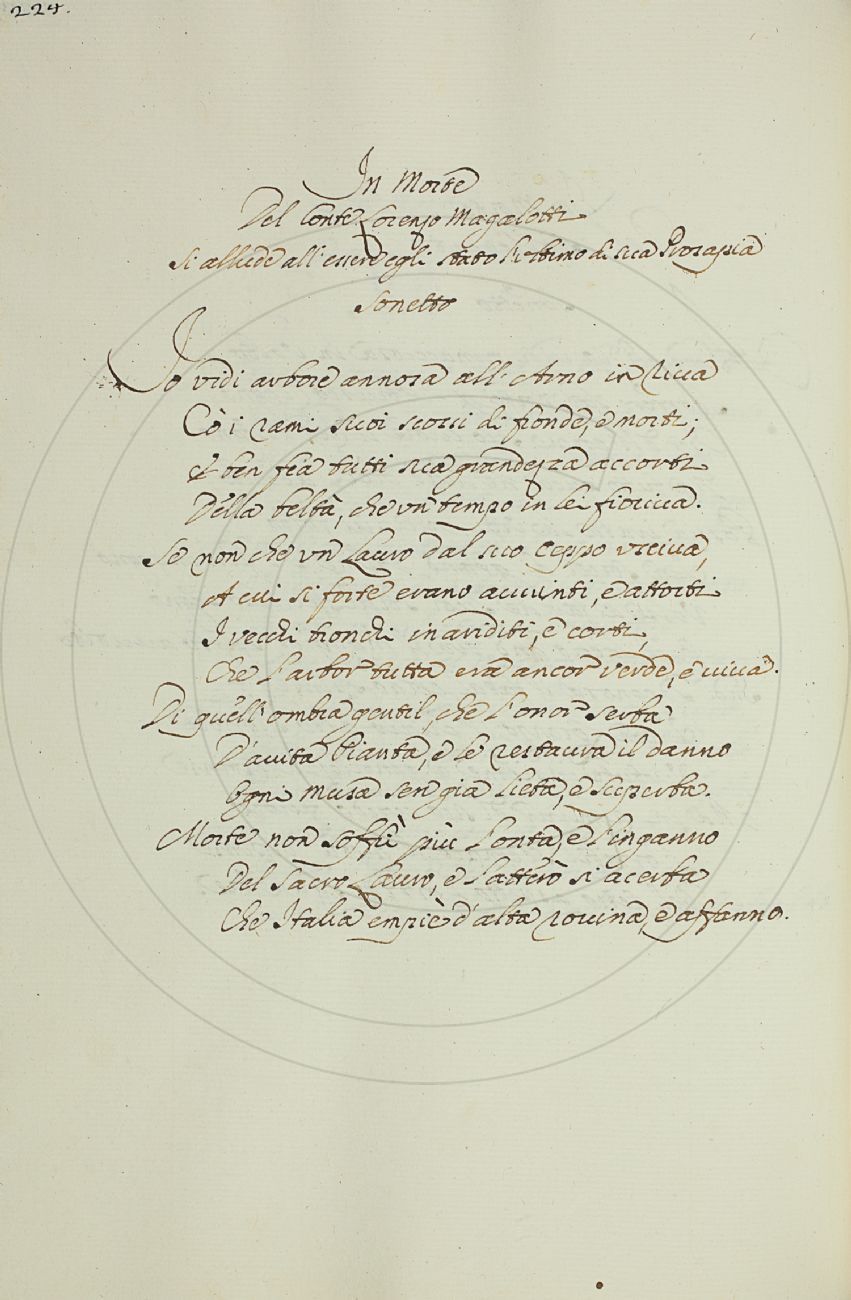 224.
In Morte
Del Conte Lorenzo Magalotti
Si allude all'essere egli stato l'ultimo di sua Prosapia
Sonetto
Io vidi arbore annosa all'Arno in riva
Cò i rami suoi scossi di fronde, e morti;
E ben fea tutti sua grandezza accorti
Della beltà, che un tempo in lei fioriva.
Se non che un Lauro dal suo Ceppo usciva,
A cui sì forte erano avvinti, e attorti
I vecchi tronchi inariditi, e corti,
Che l'arbor tutta era ancor verde, e viva.
Di quell'ombra gentil, che l'onor serba
D'avita Pianta, e le restaura il danno
Ogni Musa sen gia lieta, e superba.
Morte non soffrì più l'onta, e l'inganno
Del Sacro Lauro, e l'atterrò sì acerba
Che Italia empiè d'alta rovina, e affanno.